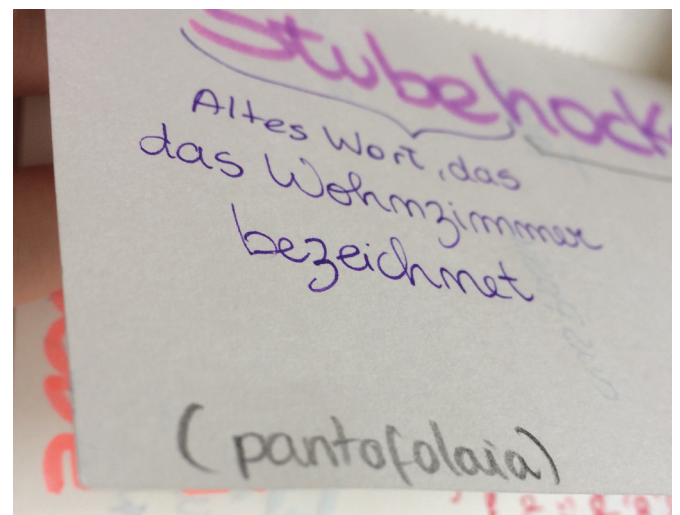 Stubehock
Altes Wort, das
das Wohnzimmer
bezeichnet
(pantofolaia)